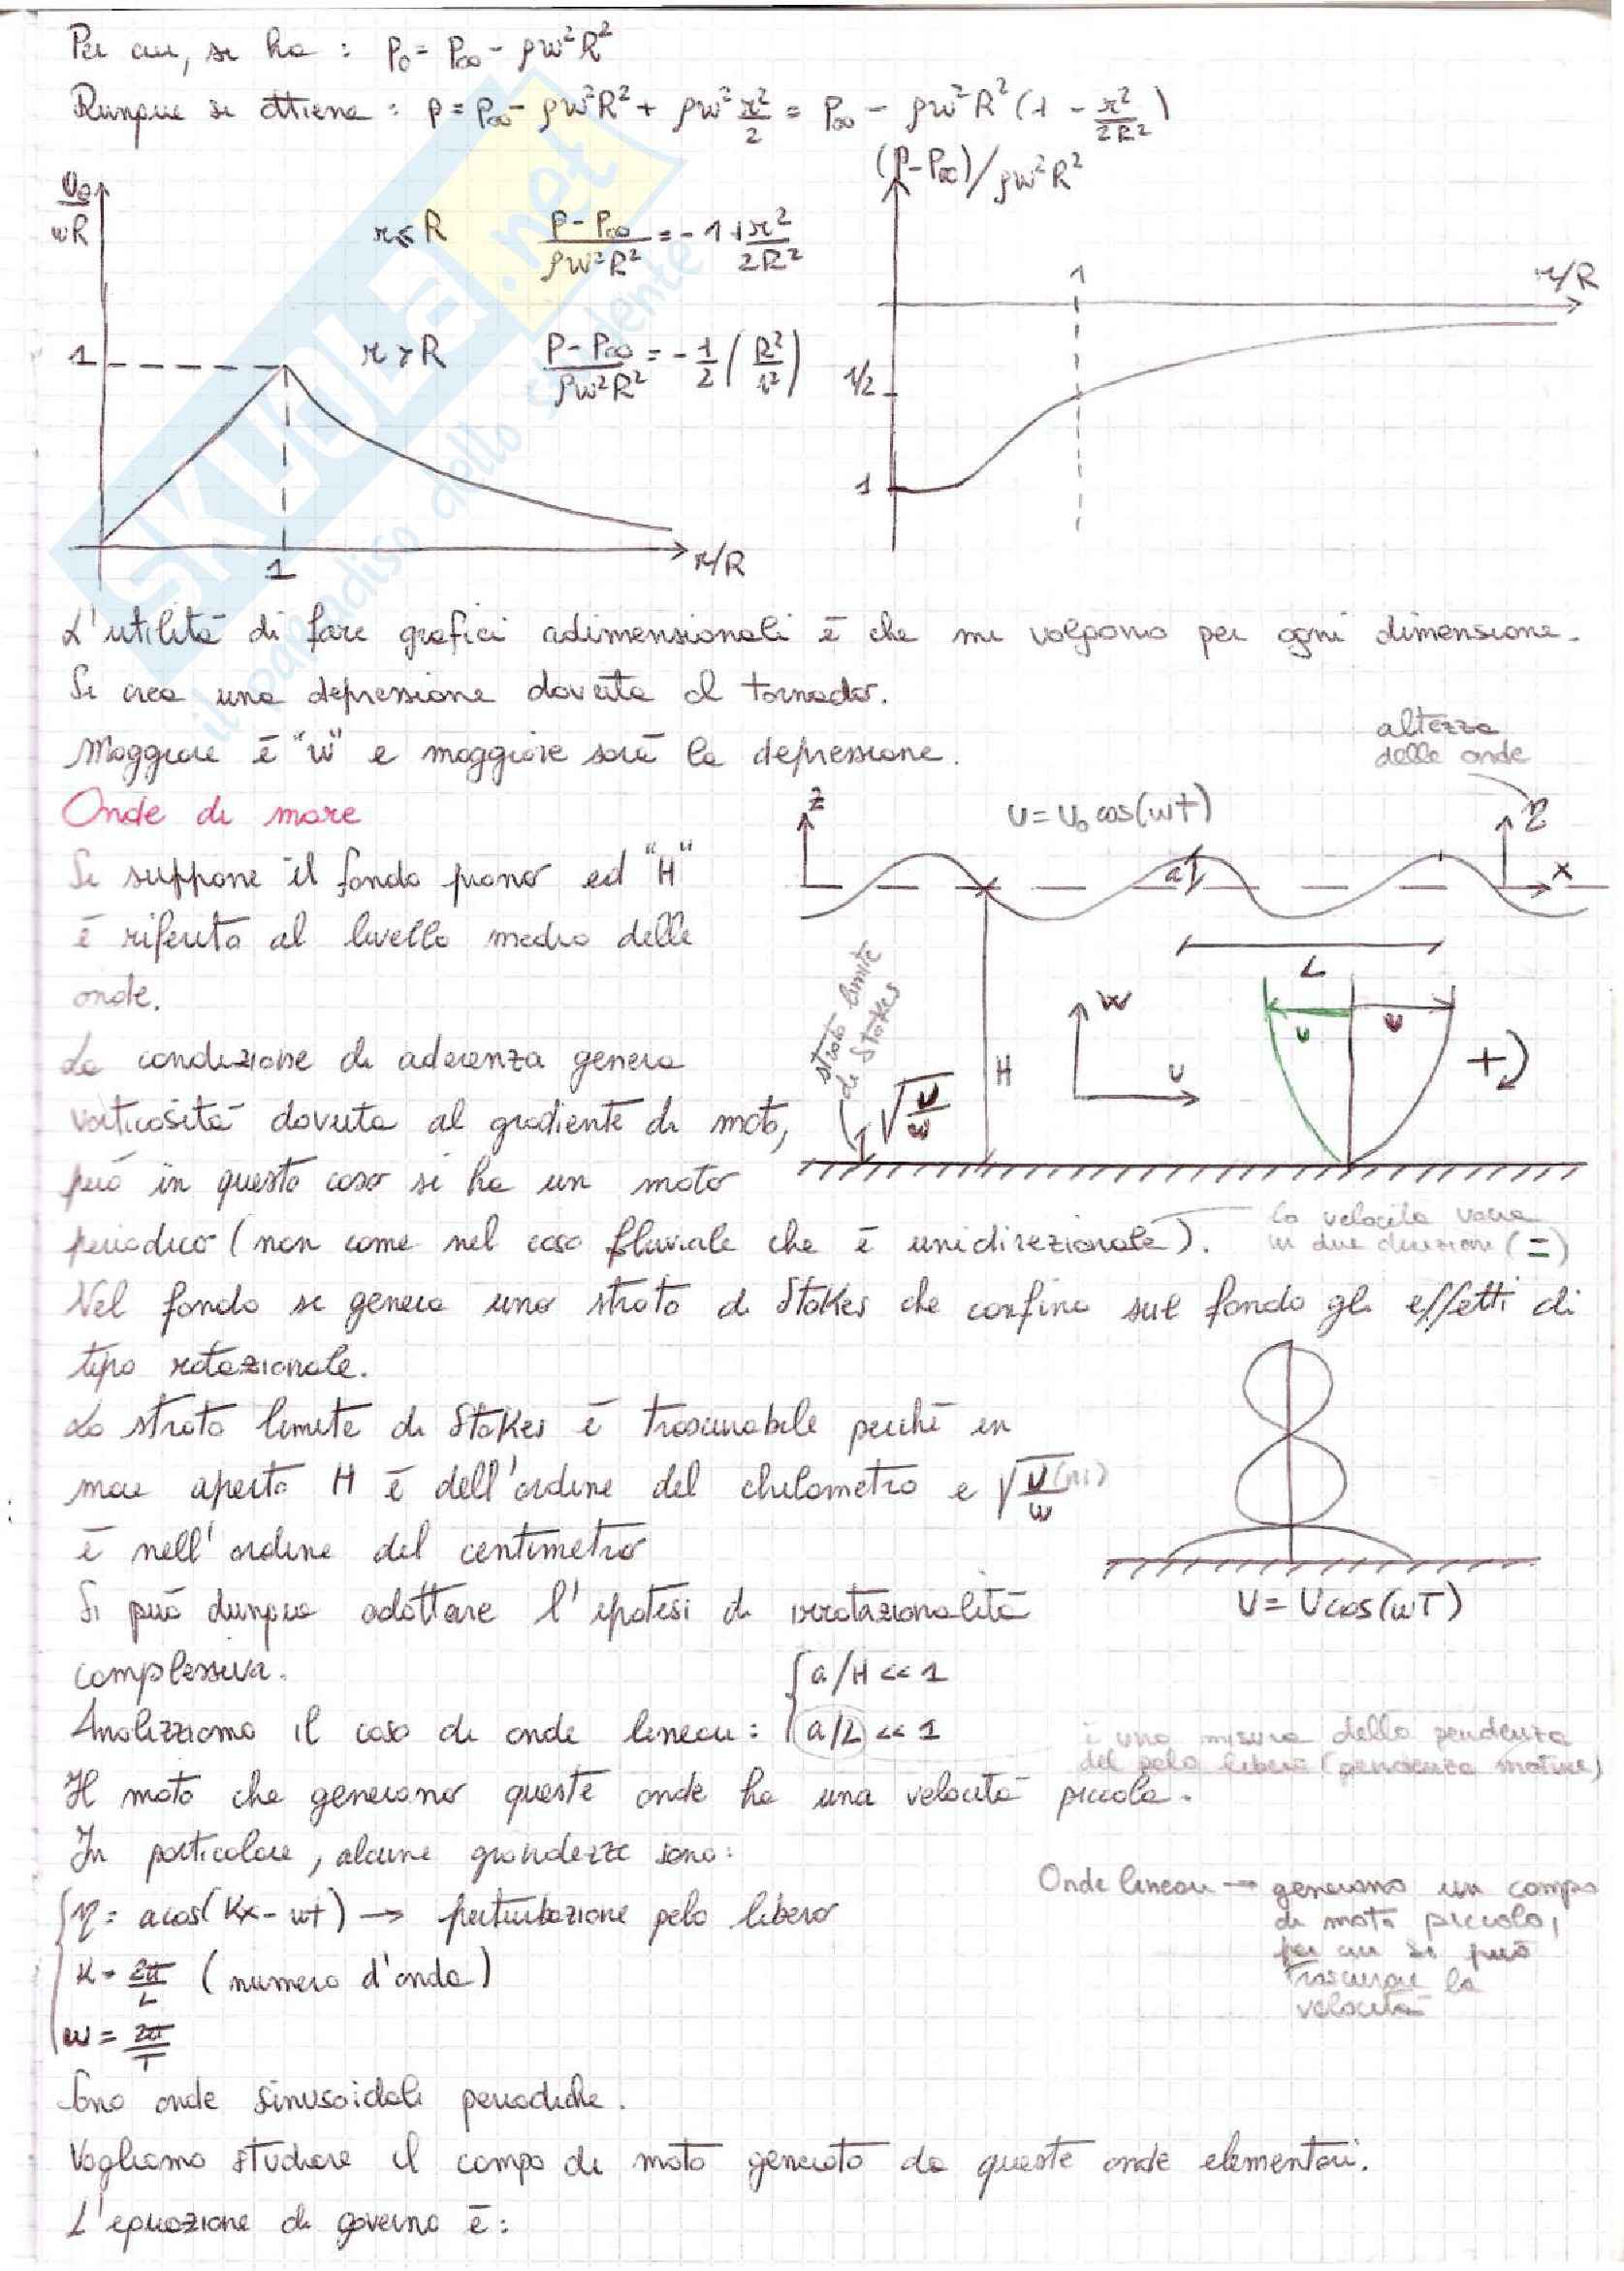 Per cui, si ha : P₀ = P∞ - ρw²R²
Dunque si ottiene : p = P∞ - ρw²R² + ρw² r²/2 = P∞ - ρw²R² (1 - r²/2R²)
(P-P∞)/ρw²R²
υθ/wR
r≤R (P-P∞)/(ρw²R²) = -1 + r²/2R²
1
r/R
1
r>R (P-P∞)/(ρw²R²) = -1/2 (R²/r²)
1/2
1
r/R
1
L'utilità di fare grafici adimensionali è che mi valgono per ogni dimensione.
Si crea una depressione dovuta al tornado.
Maggiore è "w" e maggiore sarà la depressione.
altezza
delle onde
Onde di mare
z
U = U₀ cos(wt)
η
Si suppone il fondo piano ed "H"
a
x
è riferito al livello medio delle
L
onde.
strato limite
di Stokes
w
u
u
u
+
La condizione di aderenza genera
H
√(ν/w)
vorticosità dovuta al gradiente di moto,
però in questo caso si ha un moto
periodico (non come nel caso fluviale che è unidirezionale).
la velocità varia
in due direzioni (=)
Nel fondo si genera uno strato di Stokes che confina sul fondo gli effetti di
tipo rotazionale.
Lo strato limite di Stokes è trascurabile perché in
mare aperto H è dell'ordine del chilometro e √(ν/w) (ni)
è nell'ordine del centimetro
Si può dunque adottare l'ipotesi di irrotazionalità
U = U cos(wT)
complessiva.
a/H << 1
Analizziamo il caso di onde lineari : a/L << 1
è una misura della pendenza
del pelo libero (pendenza motrice)
Il moto che generano queste onde ha una velocità piccola.
In particolare, alcune grandezze sono:
η = a cos(kx - wt) → perturbazione pelo libero
k = 2π/L (numero d'onda)
w = 2π/T
Onde lineari → generano un campo
di moto piccolo,
per cui si può
trascurare la
velocità
Sono onde sinusoidali periodiche.
Vogliamo studiare il campo di moto generato da queste onde elementari.
L'equazione di governo è :
SKUOLA.net
il paradiso dello studente